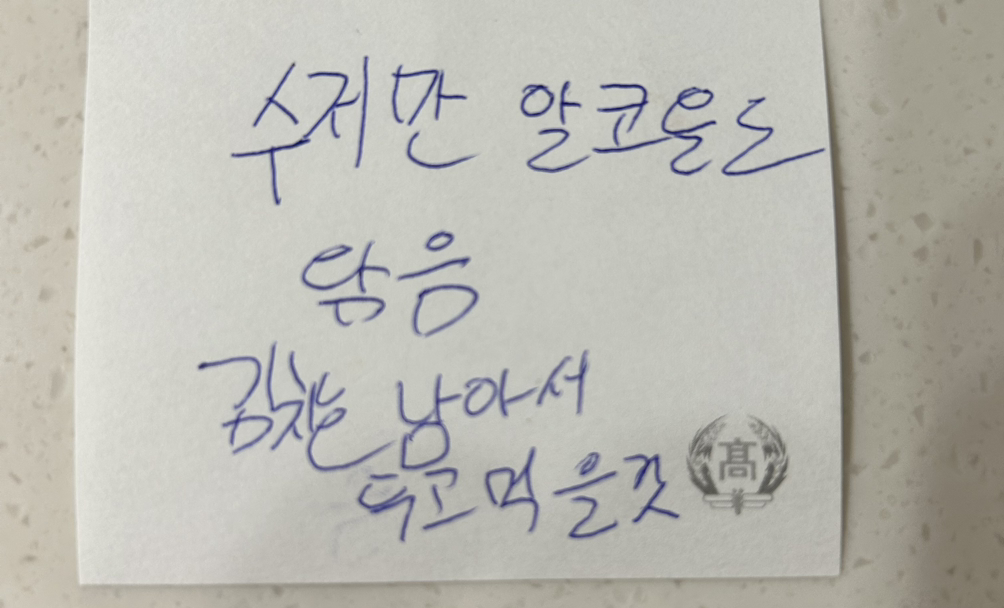 수저만 알코올도
닦음
김치는 남아서
두고 먹을것
高